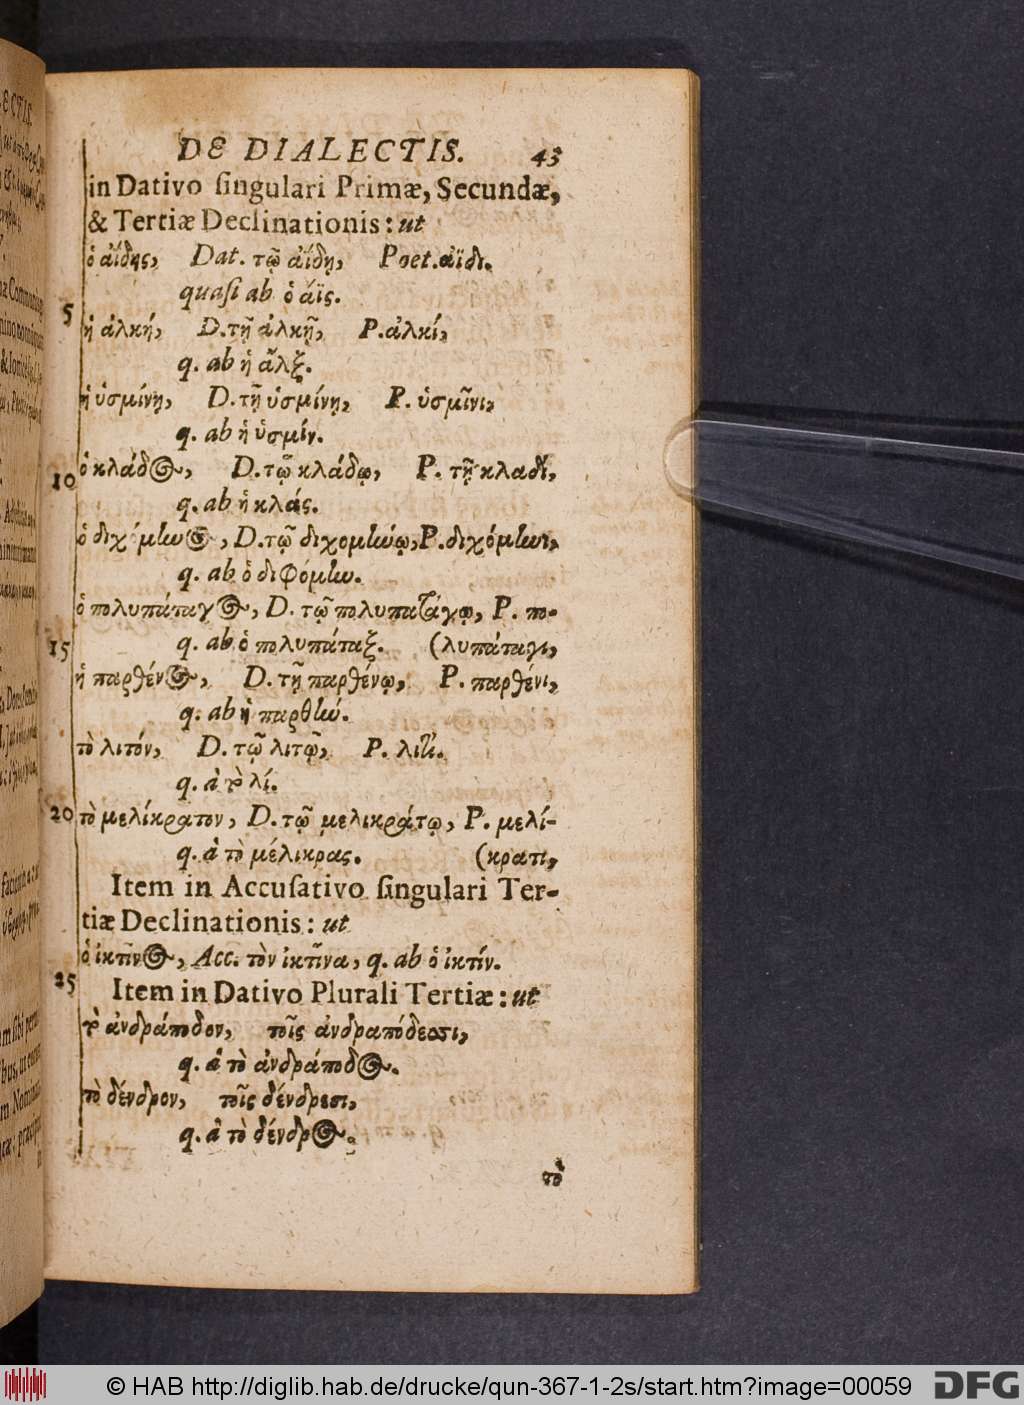 DE DIALECTIS. 43
in Dativo singulari Primæ, Secundæ,
& Tertiæ Declinationis: ut
ὁ ἀΐδης, Dat. τῷ ἀΐδῃ, Poet. ἀϊδι.
quasi ab ὁ ἀϊς.
5
ἡ ἀλκή, D. τῇ ἀλκῇ, P. ἀλκί,
q. ab ἡ ἄλξ.
ἡ ὑσμίνη, D. τῇ ὑσμίνῃ, P. ὑσμῖνι,
q. ab ἡ ὑσμίν.
10
ὁ κλάδος, D. τῷ κλάδῳ, P. τῇ κλαδὶ,
q. ab ἡ κλάς.
ὁ διχόμηνος, D. τῷ διχομήνῳ, P. διχόμηνι,
q. ab ὁ διφόμην.
ὁ πολυπάταγος, D. τῷ πολυπατάγῳ, P. πο-
15
q. ab ὁ πολυπάταξ. (λυπάταγι,
ἡ παρθένος, D. τῇ παρθένῳ, P. παρθένι,
q. ab ἡ παρθήν.
τὸ λιτόν, D. τῷ λιτῷ, P. λιτί.
q. ἀ τὸ λί.
20
τὸ μελίκρατον, D. τῷ μελικράτῳ, P. μελί-
q. ἀ τὸ μέλικρας. (κρατι,
Item in Accusativo singulari Ter-
tiæ Declinationis: ut
ὁ ἰκτῖνος, Acc. τὸν ἰκτῖνα, q. ab ὁ ἰκτίν.
25
Item in Dativo Plurali Tertiæ: ut
τὸ ἀνδράποδον, τοῖς ἀνδραπόδεσι,
q. ἀ τὸ ἀνδράποδος.
τὸ δένδρον, τοῖς δένδρεσι,
q. ἀ τὸ δένδρος.
τὸ
© HAB http://diglib.hab.de/drucke/qun-367-1-2s/start.htm?image=00059
DFG